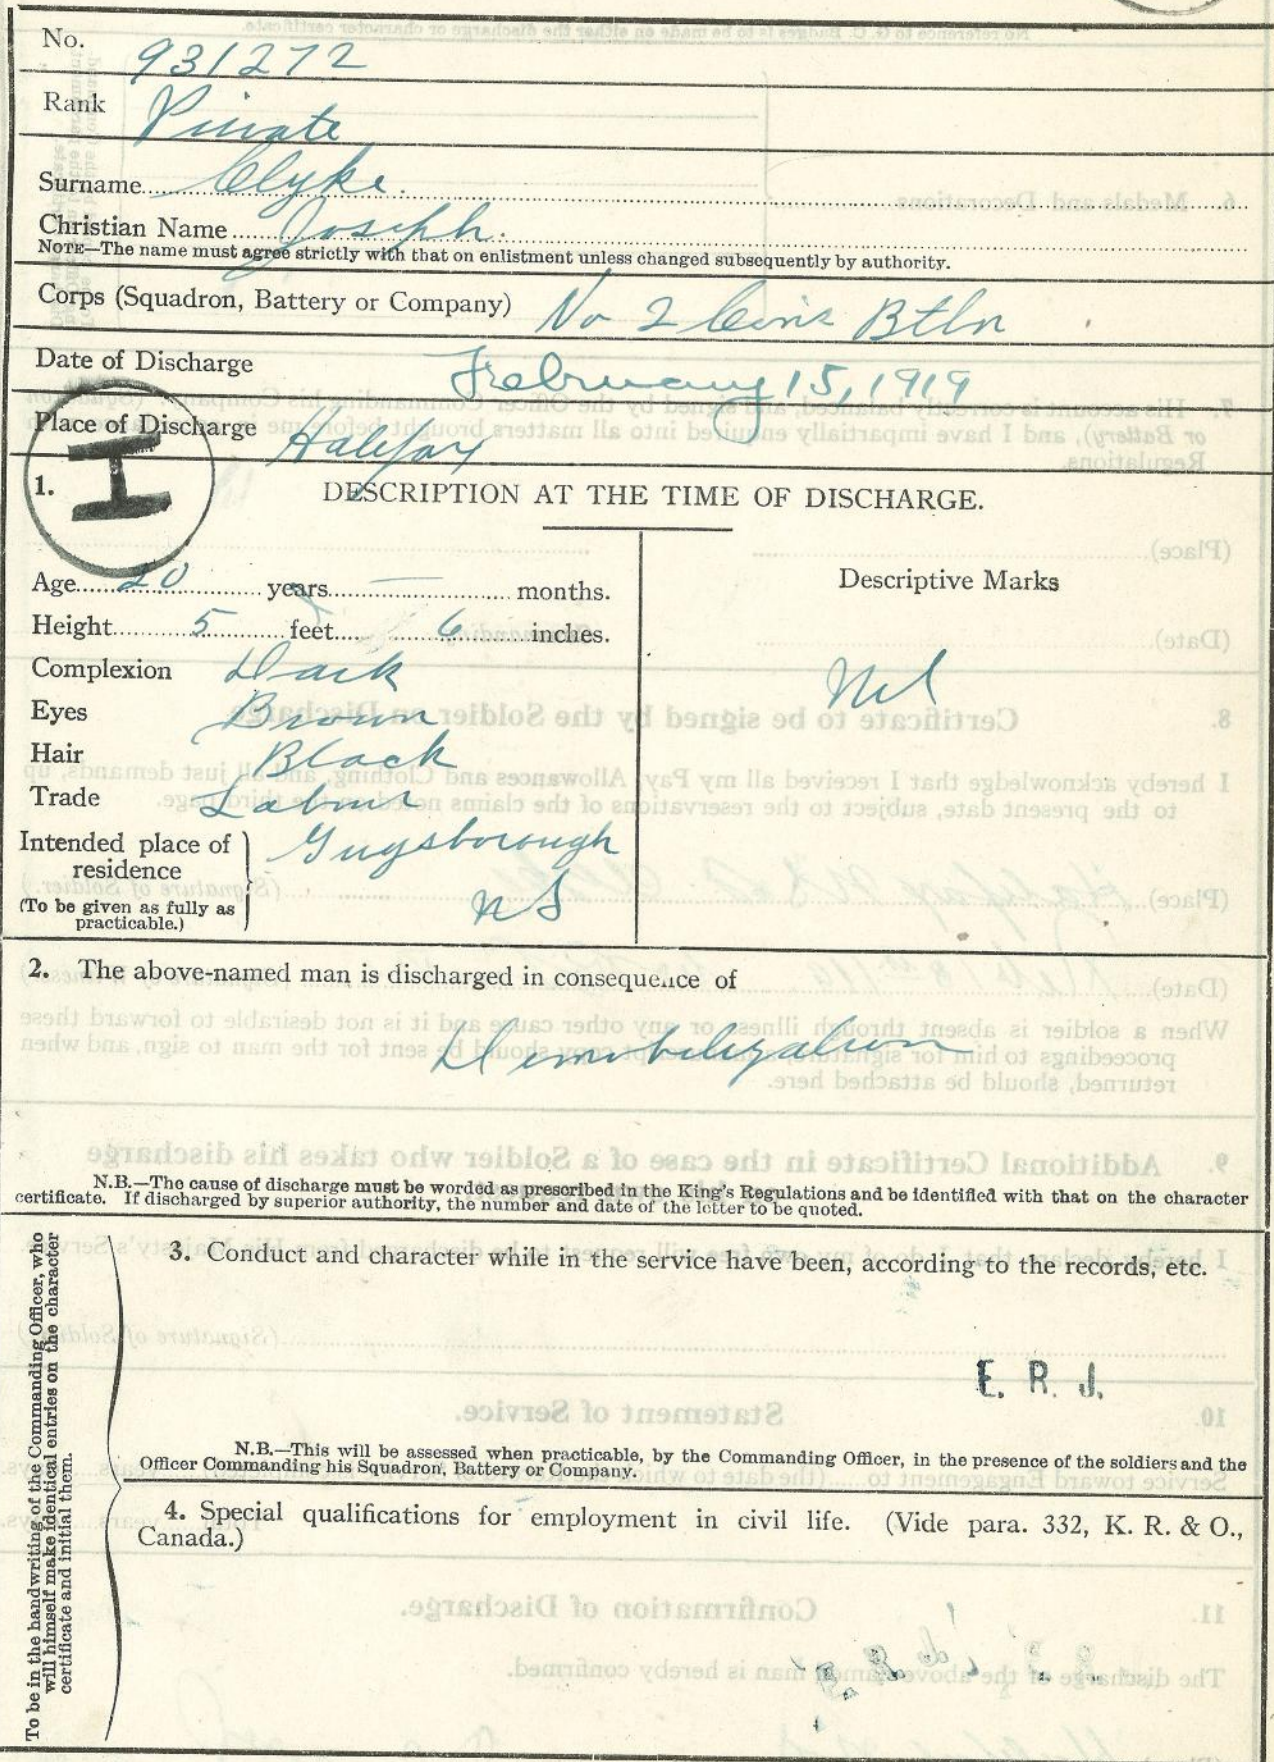 No. 931272
Rank Private
Surname Clyke.
Christian Name Joseph.
NOTE—The name must agree strictly with that on enlistment unless changed subsequently by authority.
Corps (Squadron, Battery or Company) No 2 Cons Btln
Date of Discharge February 15, 1919
Place of Discharge Halifax
H
1. DESCRIPTION AT THE TIME OF DISCHARGE.
Age 20 years — months.
Height 5 feet 6 inches.
Complexion Dark
Eyes Brown
Hair Black
Trade Labour
Intended place of residence Guysborough
NS
(To be given as fully as practicable.)
Descriptive Marks
Nil
2. The above-named man is discharged in consequence of
Demobilization
N.B.—The cause of discharge must be worded as prescribed in the King's Regulations and be identified with that on the character
certificate. If discharged by superior authority, the number and date of the letter to be quoted.
To be in the handwriting of the Commanding Officer, who
will himself make identical entries on the character
certificate and initial them.
3. Conduct and character while in the service have been, according to the records, etc.
E. R. J.
N.B.—This will be assessed when practicable, by the Commanding Officer, in the presence of the soldiers and the
Officer Commanding his Squadron, Battery or Company.
4. Special qualifications for employment in civil life. (Vide para. 332, K. R. & O.,
Canada.)